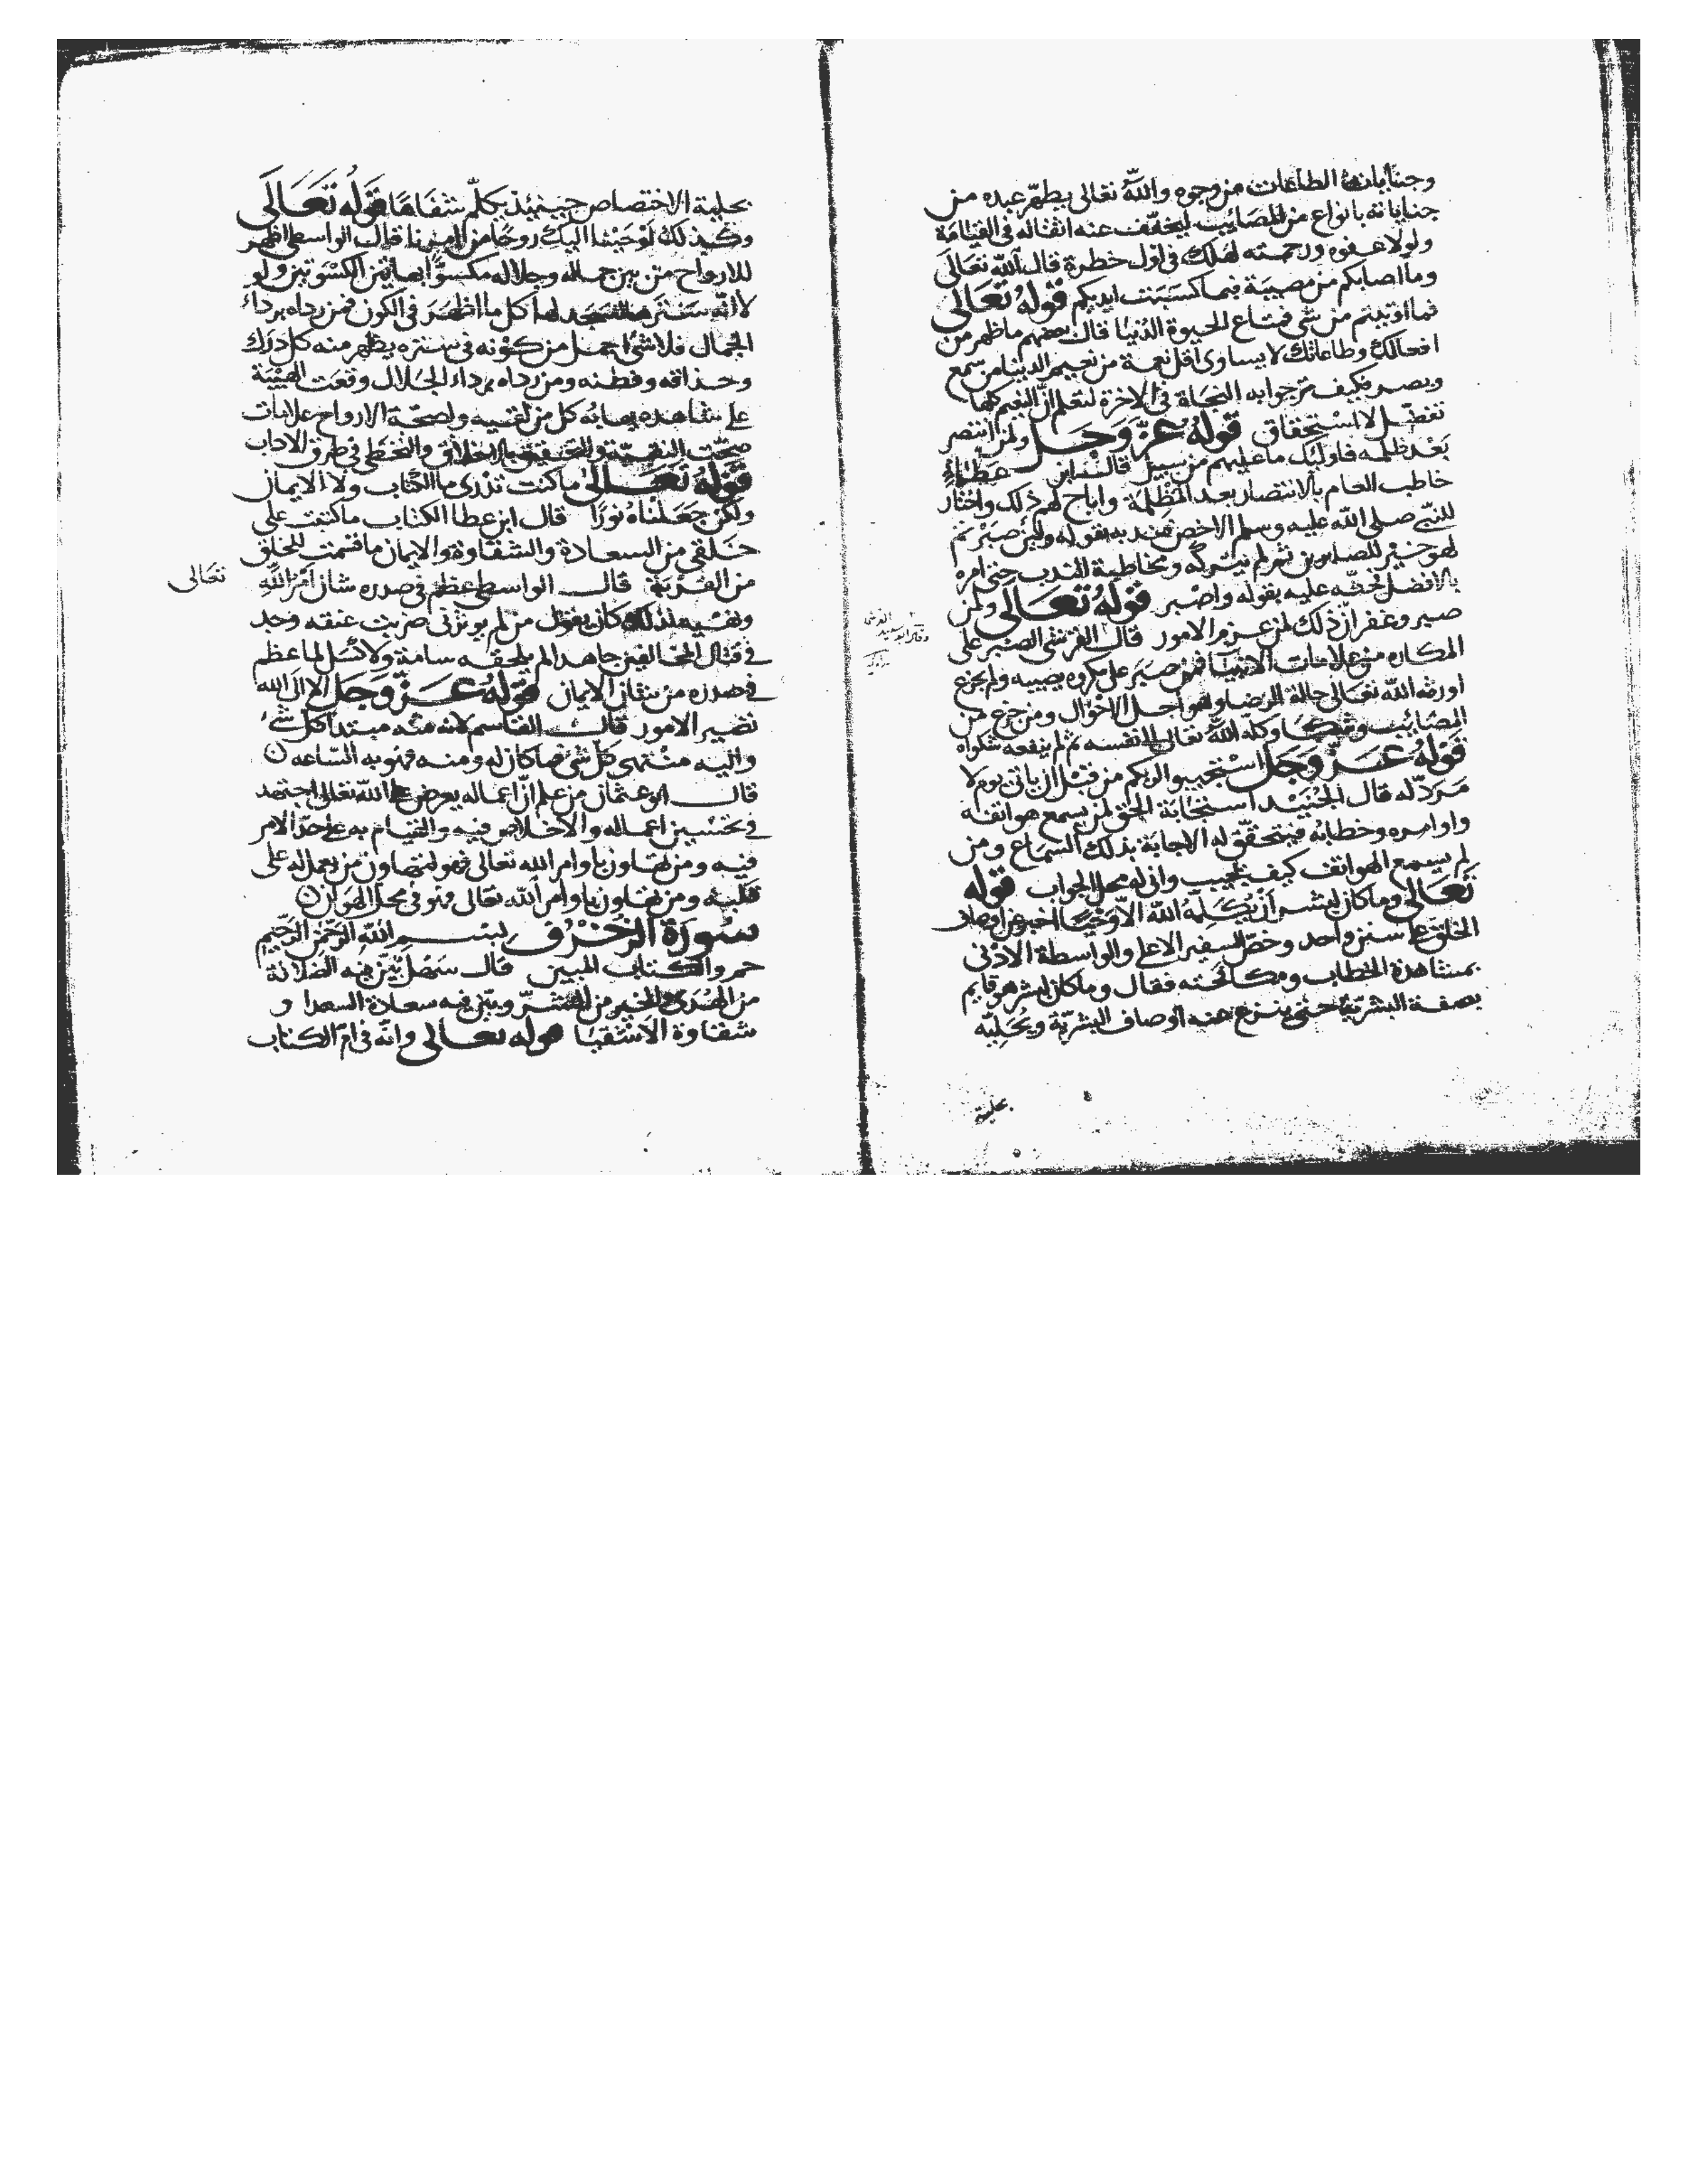 وجنايات الطاعات من وجوه والله تعالى يطهّر عبده من
جناياته بانواع من المصائيب ليخفّف عنه اثقاله فى القيامة
ولولا عفوه ورحمته لهلك فى اول خطرة قال الله تعالى
وما اصابكم من مصيبة فبما كسبت ايديكم قوله تعالى
فما اوتيتم من شى فمتاع الحيوة الدنيا قال بعضهم ما ظهر من
افعالك وطاعاتك لا يساوى اقل نعمة من نعيم الدنيا من سمع
وبصر فكيف ترجوا به النجاة فى الاخرة لتعلم انّ النعيم كلها
تفضّل لا استحقاق قوله عزّ وجل ولمن انتصر
بعد ظلمه فاوليك ما عليهم من سبيل قال ابن عطاء
خاطب العام بالانتصار بعد المظلمة واباح لهم ذلك واختار
للنبى صلى الله عليه وسلم الاخص فندبه بقوله ولئن صبرتم
لهو خير للصابرين ثم لم يتركه ومخاطبة الندب حتى امره
بالافضل لحثّه عليه بقوله واصبر قوله تعالى ولمن
صبر وغفر ان ذلك لمن عزم الامور قال القرشى الصبر على
المكاره من علامات الانبيا فمن صبر على مكروه يصيبه ولم يجزع
اورثه الله تعالى حالة الرضا وهو اجل الاحوال ومن جزع من
المصائيب وشكا وكله الله تعالى الى نفسه ثم لم ينفعه شكواه
قوله عزّ وجل استجيبوا لربكم من قبل ان ياتى يوم لا
مردّ له قال الجنيد استجابة الحق لمن يسمع هواتفه
واوامره وخطابه فيتحقّق له الاجابة بذلك السماع ومن
لم يسمع الهواتف كيف يجيب وانى له محل الجواب قوله
تعالى وما كان لبشر ان يكلمه الله الا وحيا اخبر عن اوصاف
الخلق على سنن واحد وخصّ السفير الاعلى والواسطة الادنى
بمشاهدة الخطاب ومكافحته فقال وما كان لبشر هو قايم
بصفة البشرية حتى ينزع عنه اوصاف البشريّة ويحليه
بحلية
بحلية الاختصاص حينئذ يكلّم شفاها قوله تعالى
وكذلك اوحينا اليك روحا من امرنا قال الواسطى اظهر
للارواح من بين جماله وجلاله مكسوّا بهاتين الكسوتين ولو
لا انه ستر لسجد لها كل ما اظهر فى الكون فمن رداه برداء
الجمال فلا شئ اجمل من كونه فى ستره يظهر منه كل درك
وحذاقه وفطنه ومن رداه برداء الجلال وقعت الهيبة
على شاهده يهابه كل من لقيه ولصحّة الارواح علامات
والتخطى فى طرق الاداب
قوله تعالى ما كنت تدرى ما الكتاب ولا الايمان
ولكن جعلناه نورا قال ابن عطا الكتاب ما كتبت على
خلقى من السعادة والشقاوة والايمان ما قسمت للخلق
من القربة قال الواسطى عظم فى صدره شان امر الله
تعالى
ونفسه لذلك كان يقول من لم يوترنى ضربت عنقه وجد
فى قتال المخالفين جاهدا لم يلحقه سامة ولا كسل لما عظم
فى صدره من شان الايمان قوله عزّ وجل الا الى الله
تصير الامور قال القاسم لانه منه مبتدا كل شئ
واليه منتهى كل شئ فما كان له ومنه فهو به الساعه
قال ابو عثمان من علم ان اعماله يعرض على الله تعالى اجتهد
فى تحسين اعماله والاخلاص فيه والقيام به على حدّ الامر
فيه ومن تهاون باوامر الله تعالى فهو لمتهاون من يعمل له على
قلبه ومن تهاون باوامر الله تعالى فهو فى محل الهوان
سورة الزخرف بسم الله الرحمن الرحيم
حم والكتاب المبين قال سهل بيّن فيه الضلالة
من الهدى والخير من الشرّ وبيّن فيه سعادة السعدا و
شقاوة الاشقيا قوله تعالى وانّه فى امّ الكتاب